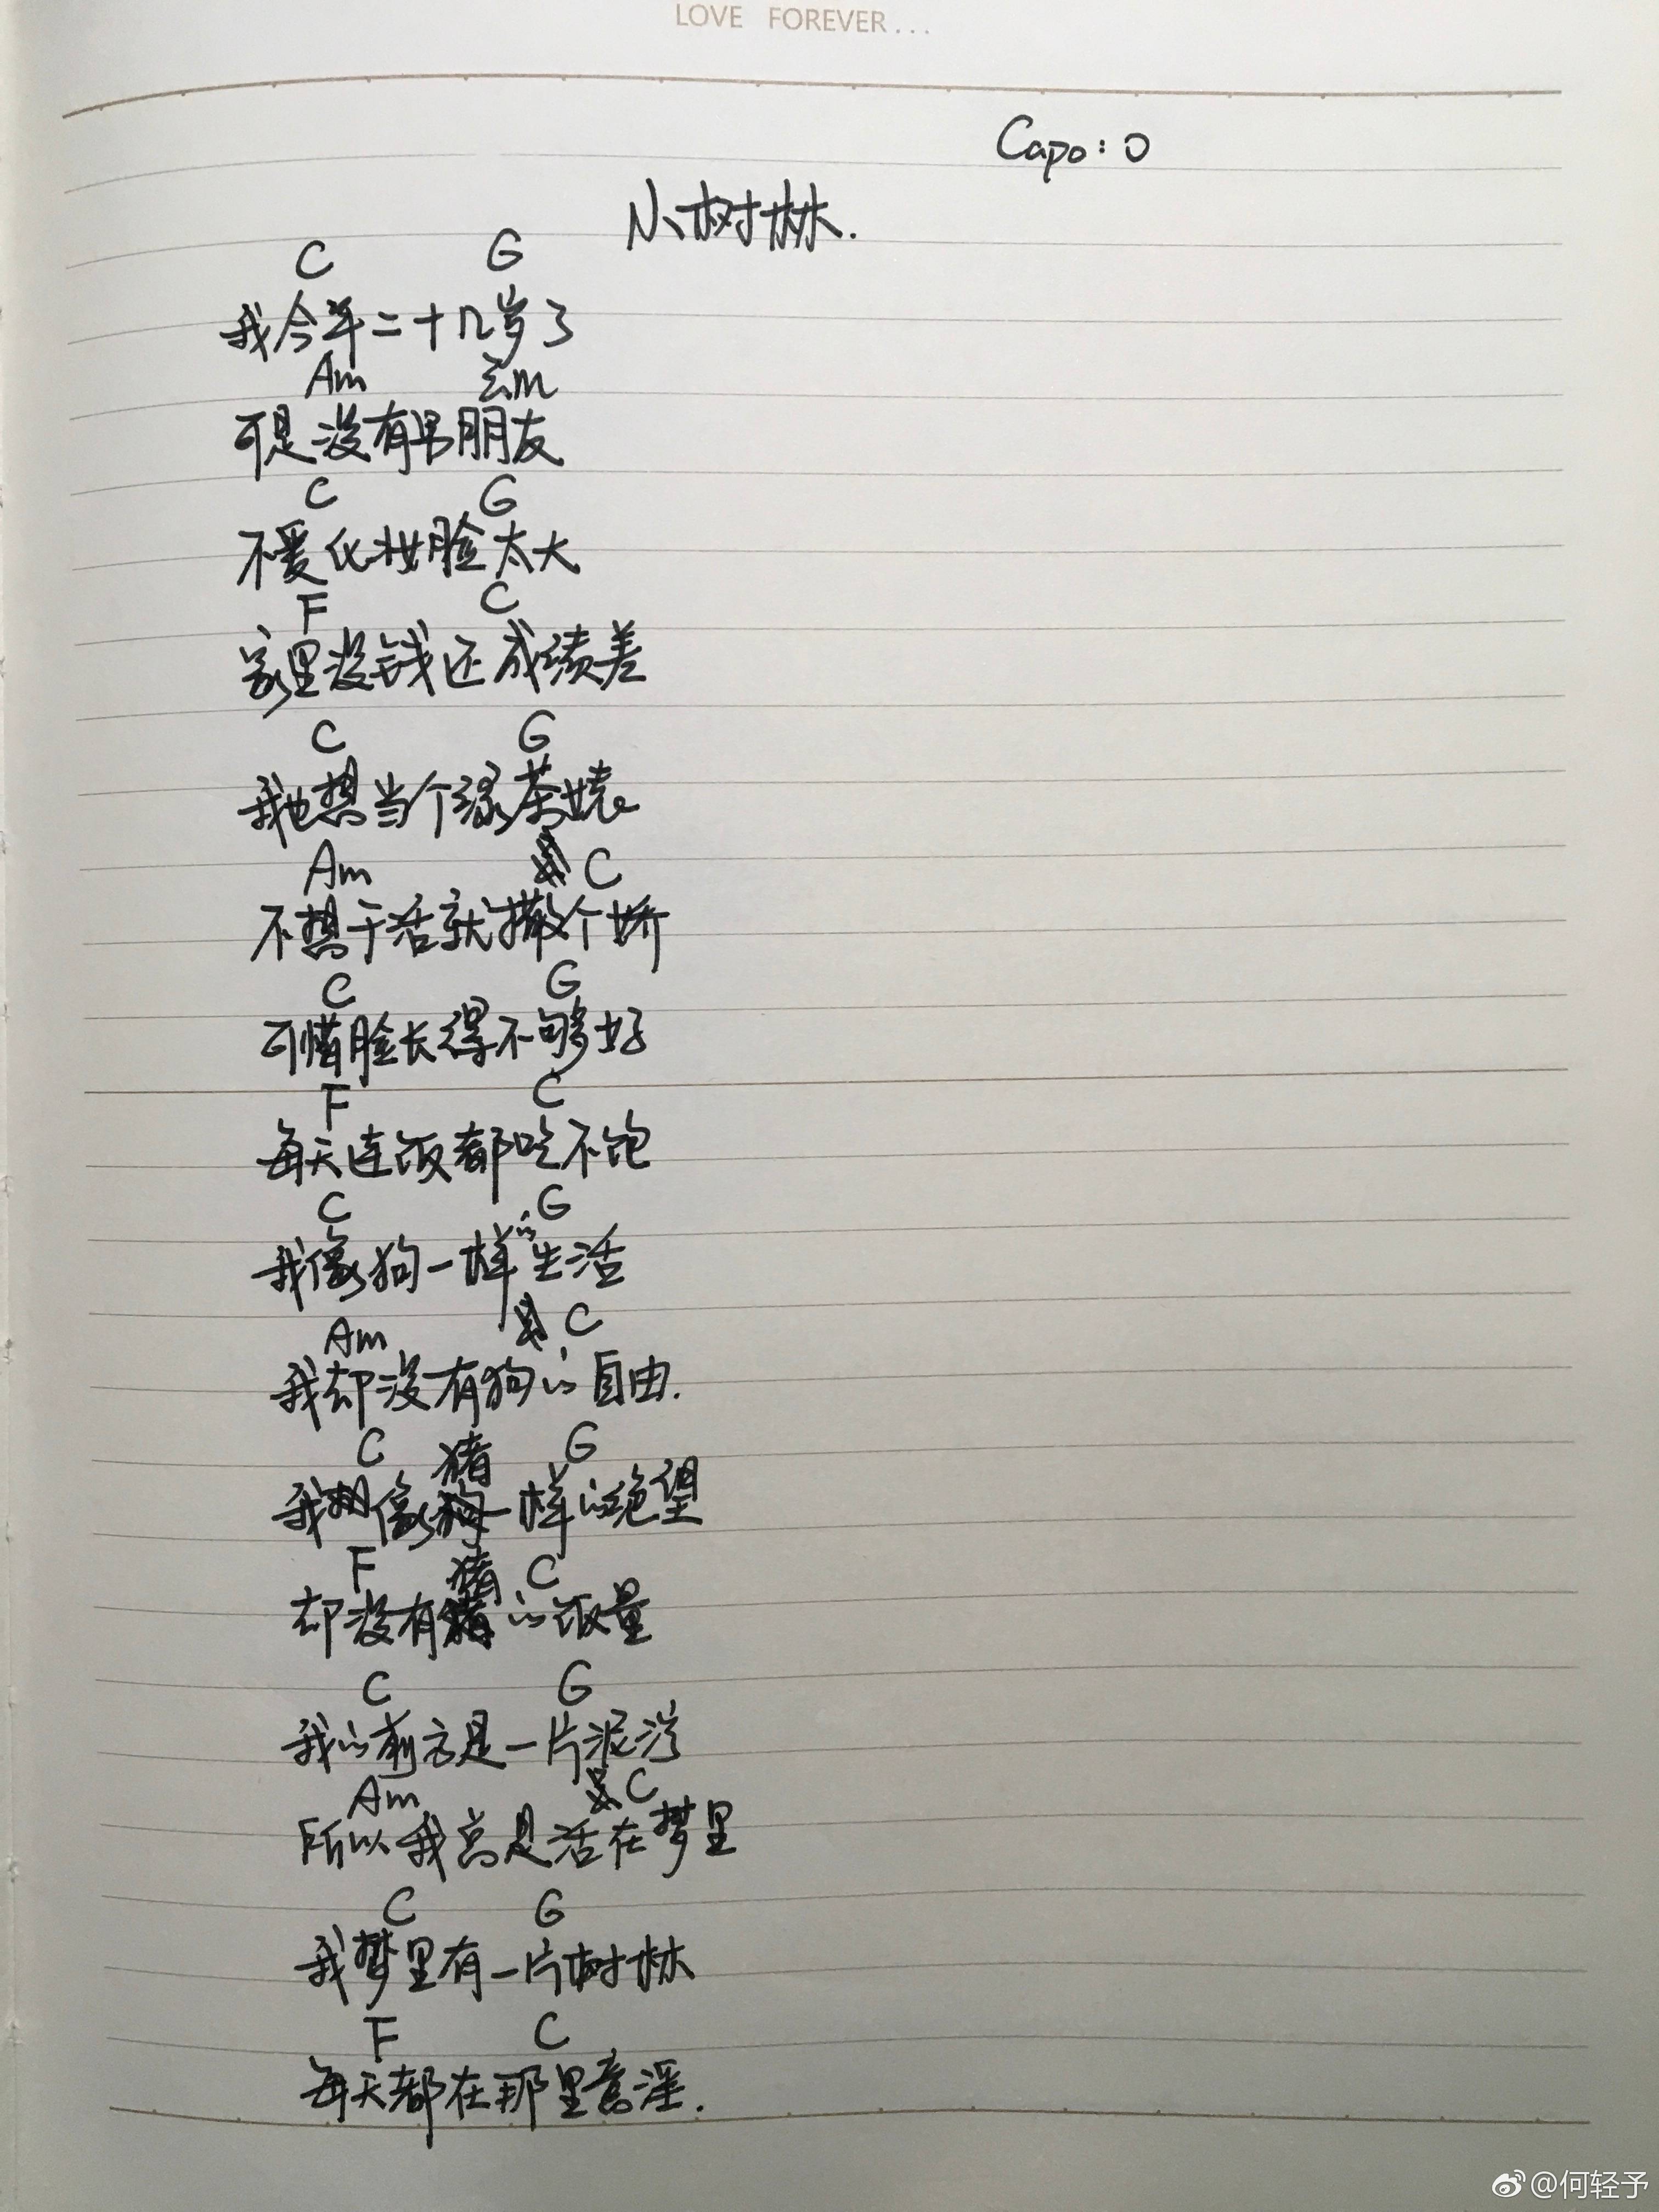 LOVE FOREVER...
Capo: 0
小树林.
C G
我今年二十几岁了
Am Em
可是没有男朋友
C G
不爱化妆脸太大
F C
家里没钱还成绩差
C G
我也想当个绿茶婊
Am C
不想干活就撒个娇
C G
可惜脸长得不够好
F C
每天连饭都吃不饱
C G
我像狗一样的生活
Am C
我却没有狗的自由.
C G
我像猪一样的绝望
F C
却没有猪的饭量
C G
我的前方是一片泥泞
Am C
所以我总是活在梦里
C G
我梦里有一片树林
F C
每天都在那里意淫.
@何轻予